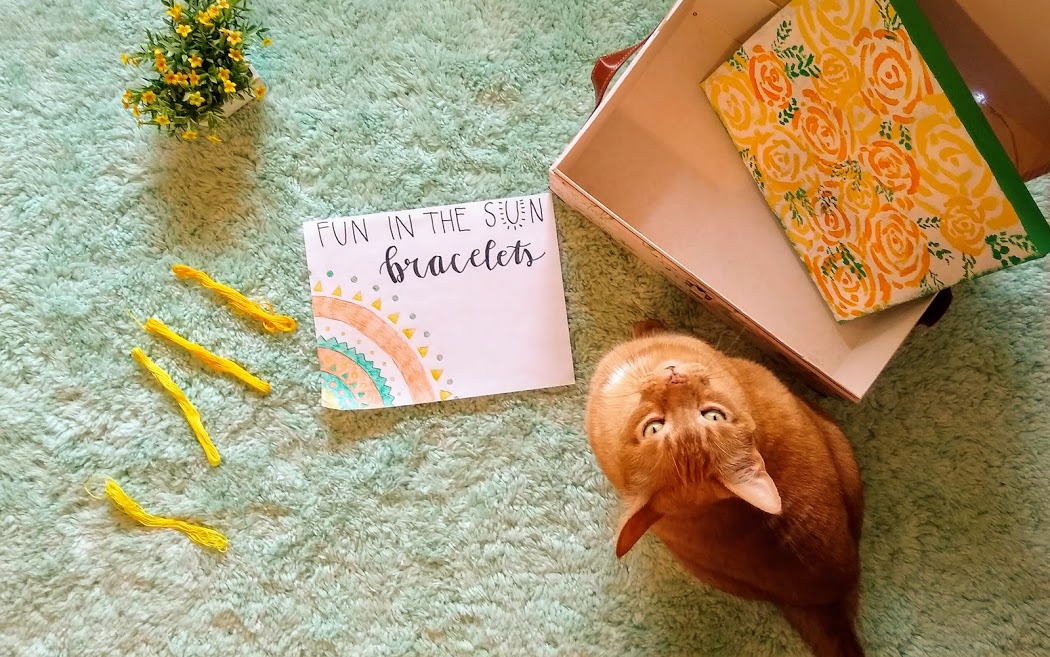 FUN IN THE SUN
bracelets